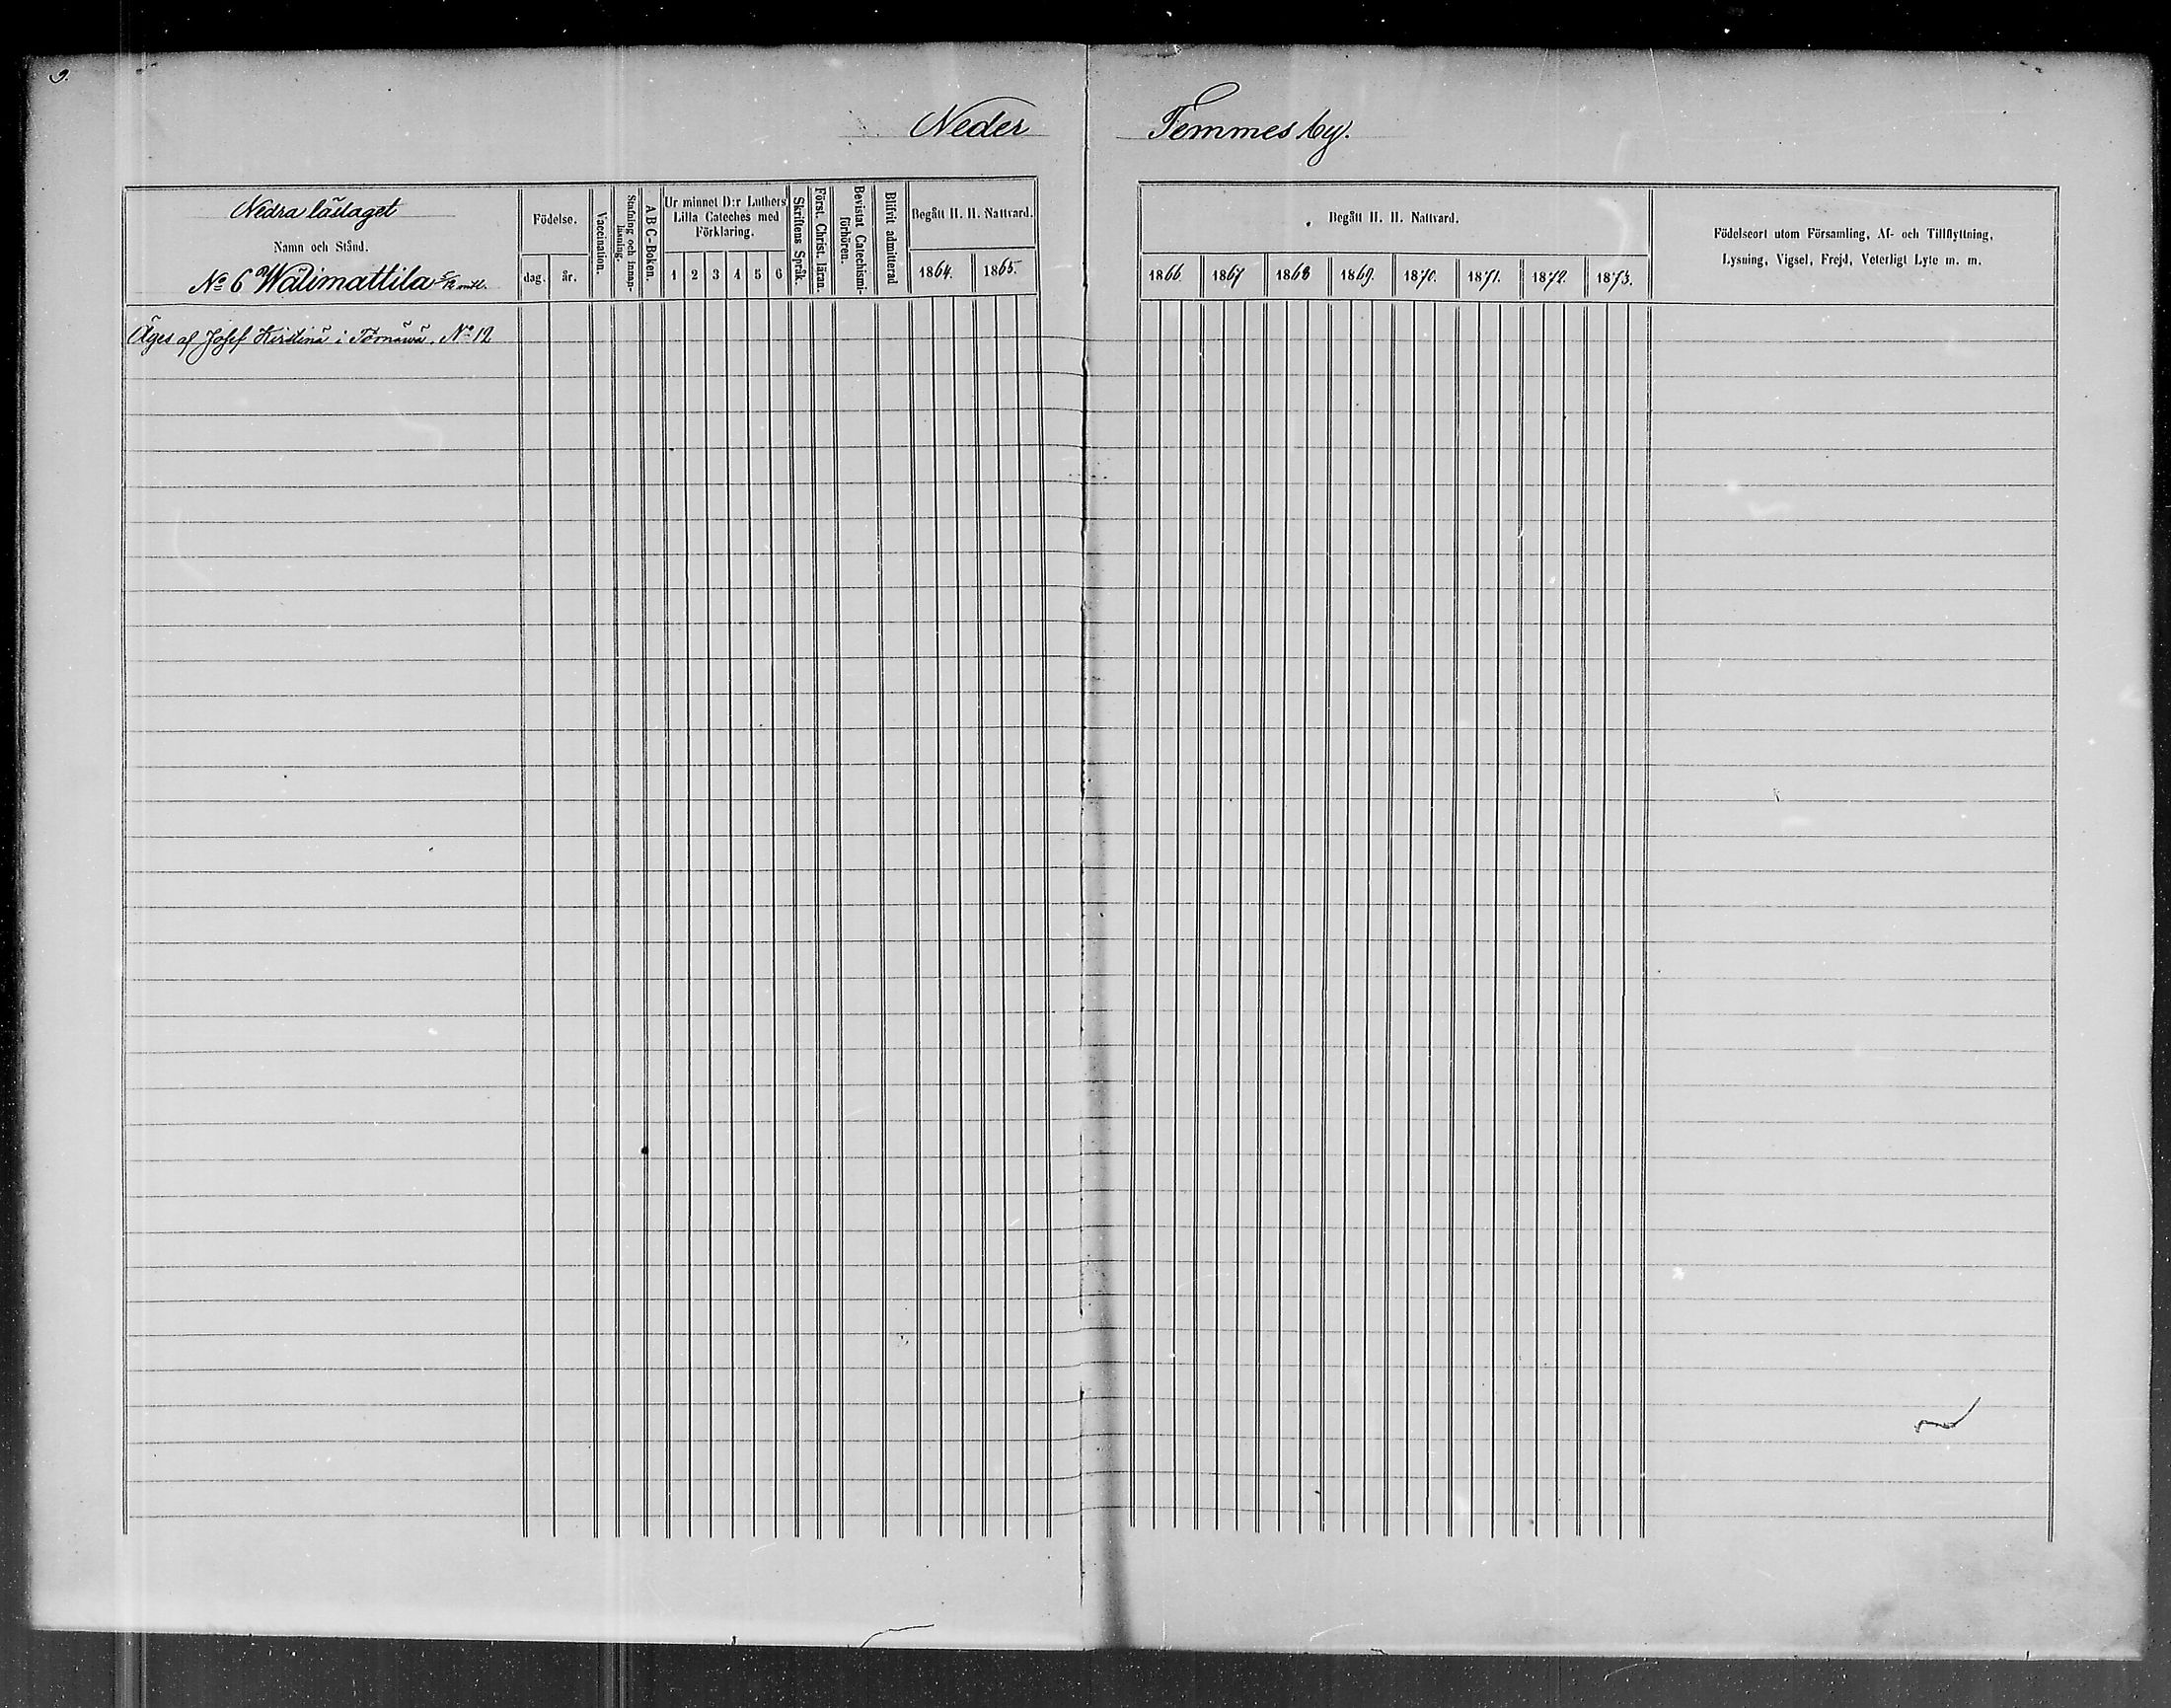 9.
Neder Temmes by.
Nedra läslaget
Namn och Stånd.
No 6 Wälimattila
Födelse.
dag. år.
Vaccination.
Stafning och innanläsning.
A B C-Boken.
Ur minnet D:r Luthers
Lilla Cateches med
Förklaring.
1 2 3 4 5 6
Skriftens Språk.
Först. Christ. läran.
Bevistat Catechismi-
förhören.
Blifvit admitterad
Begått H. H. Nattvard.
1864. 1865.
Begått H. H. Nattvard.
1866. 1867 1868 1869. 1870. 1871. 1872. 1873.
Födelseort utom Församling, Af- och Tillflyttning,
Lysning, Vigsel, Frejd, Veterligt Lyte m. m.
Äges af Josef Kirstinä i Tömäwä, No 12